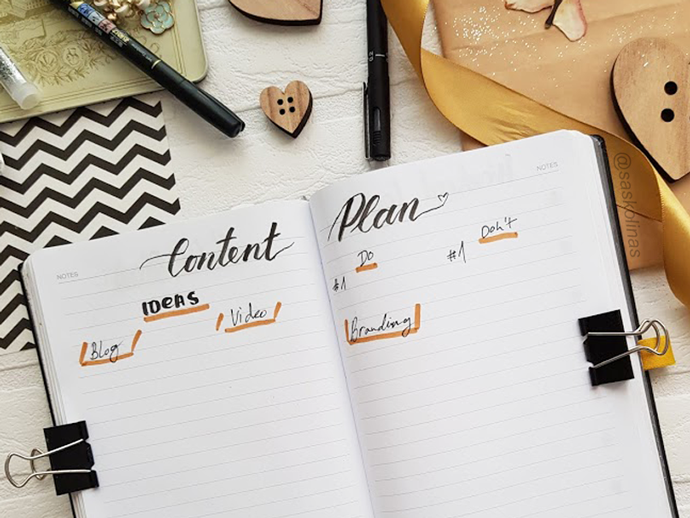 NOTES
Content
IDEAS
Blog
Video
NOTES
Plan
Do
Don't
#1
#1
Branding
@saskolinas